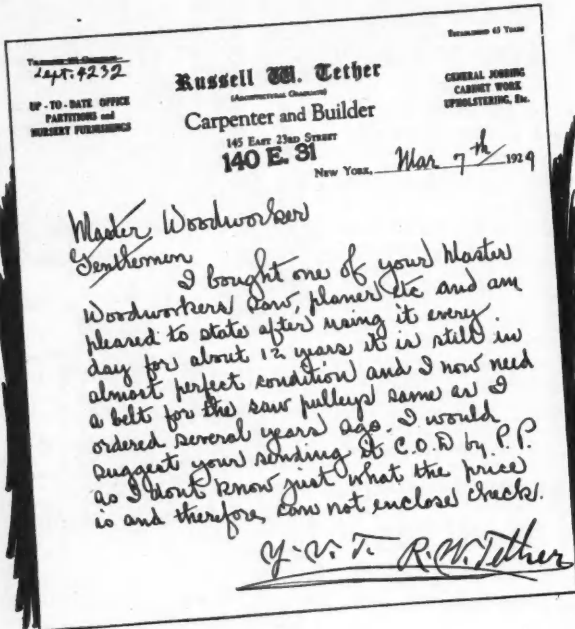 ESTABLISHED 65 YEARS
Lept. 4232
UP - TO - DATE OFFICE
PARTITIONS and
NURSERY FURNISHINGS
Russell W. Tether
(ARCHITECTURAL GRADUATE)
Carpenter and Builder
145 EAST 23RD STREET
140 E. 31
GENERAL JOBBING
CABINET WORK
UPHOLSTERING, Etc.
NEW YORK, Mar 7th 1929
Master Woodworker
Gentlemen
I bought one of your Master
Woodworkers saw, planer etc and am
pleased to state after using it every
day for about 12 years it is still in
almost perfect condition and I now need
a belt for the saw pulleys same as I
ordered several years ago. I would
suggest your sending it C.O.D by P.P.
as I dont know just what the price
is and therefore can not enclose check.
Y. V. T. R. W. Tether